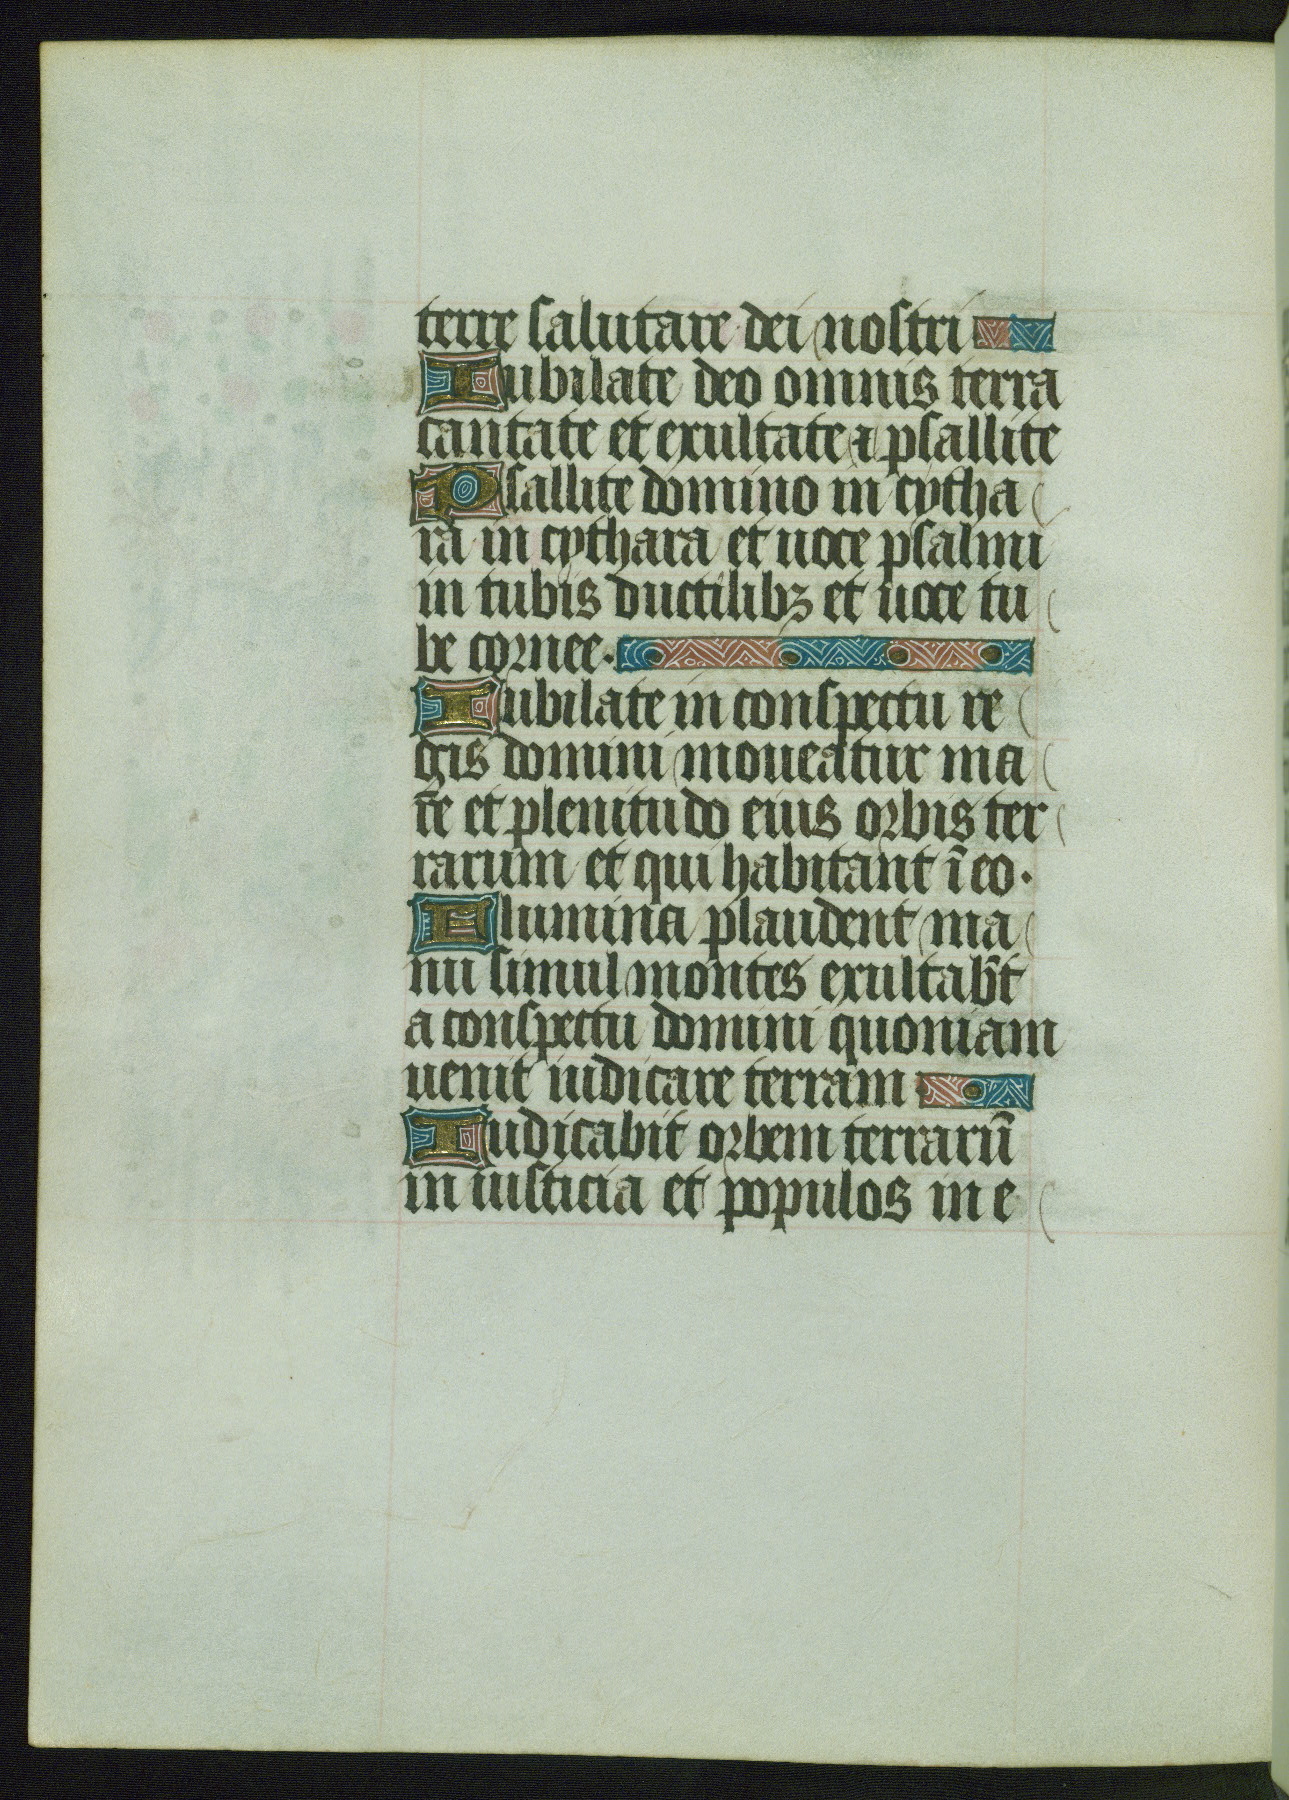 terre salutare dei nostri
Iubilate deo omnis terra
cantate et exultate ⁊ psallite
Psallite domino in cytha
ra in cythara et uoce psalmi
in tubis ductilibꝫ et uoce tu
be cornee.
Iubilate in conspectu re
gis domini moueatur ma
r̄e et plenitudo eius orbis ter
rarum et qui habitant ī eo.
Flumina plaudent ma
nu simul montes exultab̄t
a conspectu domini quoniam
uenit iudicare terram
Iudicabit orbem terrarū
in iusticia et populos in e